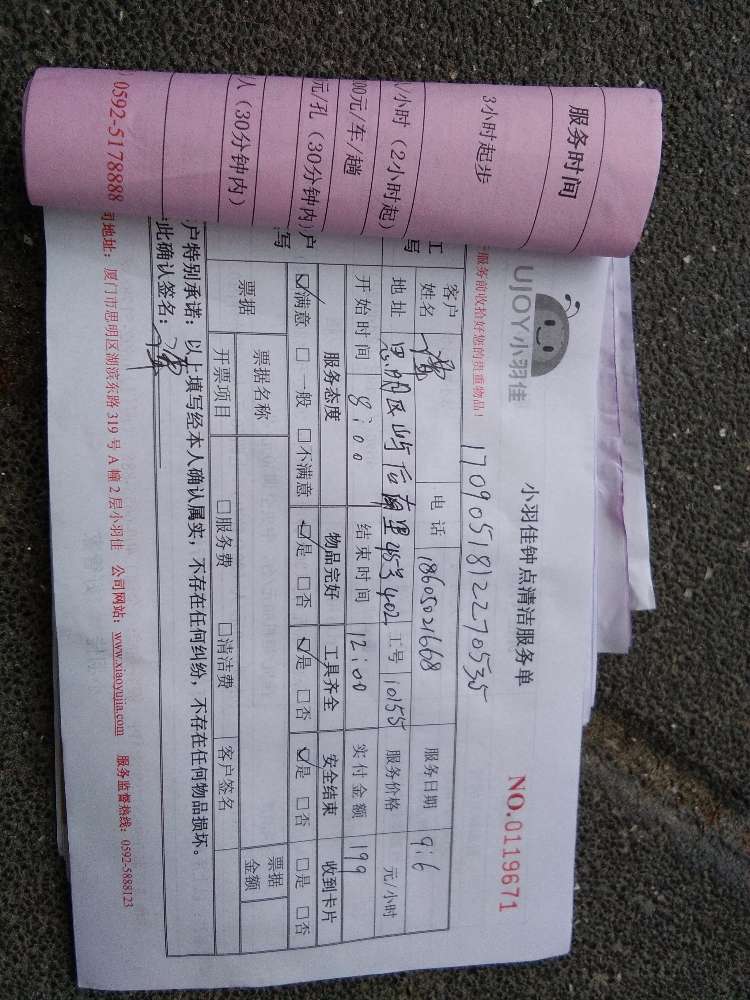 服务时间
3小时起步
/小时（2小时起）
00元/车/趟
元/孔（30分钟内）
人（30分钟内）
0592-5178888
UJOY小羽佳
小羽佳钟点清洁服务单
NO.0119671
服务前收拾好您的贵重物品！
17090518122270535
客户姓名 电话 18605021668 服务日期 9.6
地址 思明区屿后南里 402 工号 10155 服务价格 元/小时
开始时间 8:00 结束时间 12:00 实付金额 199
服务态度 物品完好 工具齐全 安全结束 收到卡片
☑满意 □一般 □不满意 ☑是 □否 ☑是 □否 ☑是 □否 □是 □否
票据 票据名称 票据金额
开票项目 □服务费 □清洁费 客户签名
户特别承诺：以上填写经本人确认属实，不存在任何纠纷，不存在任何物品损坏。
此确认签名：
司地址：厦门市思明区湖滨东路319号A幢2层小羽佳 公司网站：www.xiaoyujia.com 服务监督热线：0592-5888123